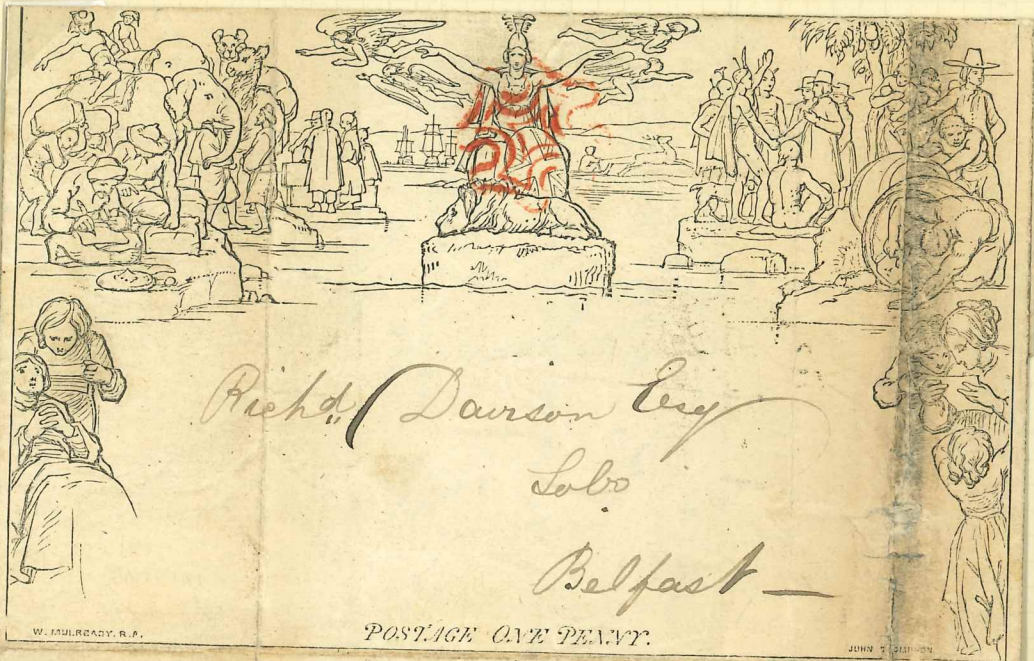 Richd, Davison Esq
Lobo
Belfast
W. MULREADY. R.A.
POSTAGE ONE PENNY.
JOHN THOMPSON